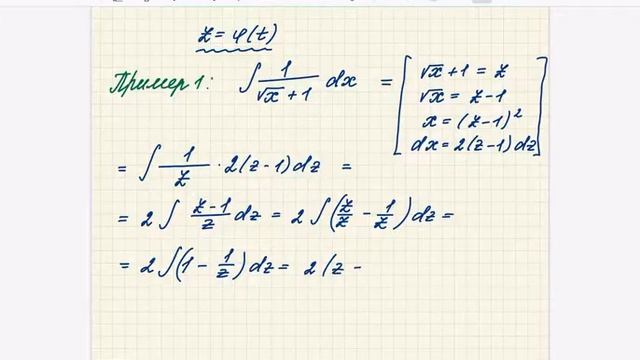 z = φ(t)
Пример 1: ∫ 1/(√x + 1) dx = [ √x + 1 = z
√x = z - 1
x = (z - 1)²
dx = 2(z - 1) dz ]
= ∫ 1/z · 2(z - 1) dz =
= 2 ∫ (z - 1)/z dz = 2 ∫ (z/z - 1/z) dz =
= 2 ∫ (1 - 1/z) dz = 2 (z -